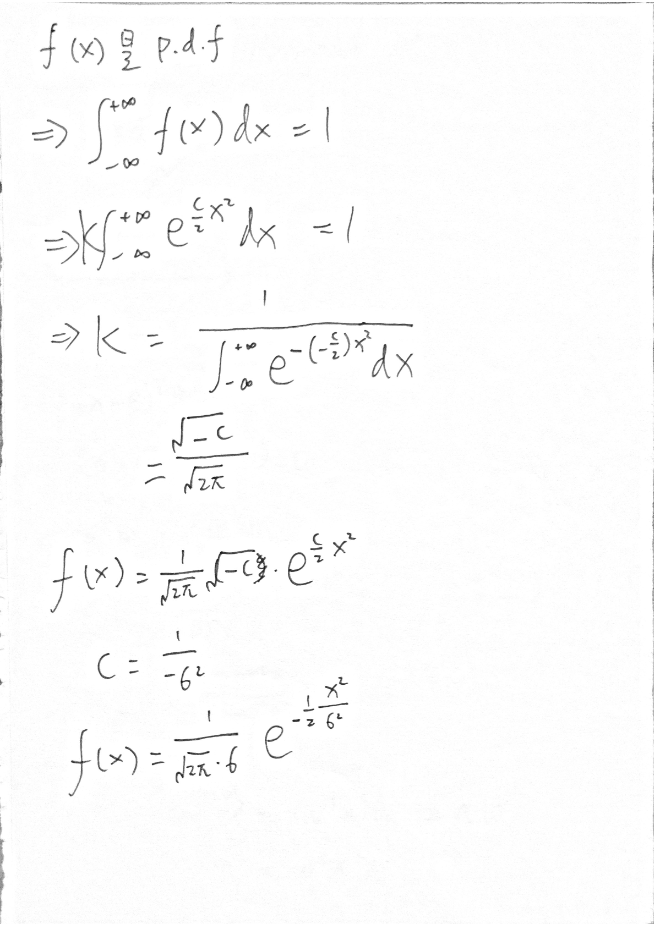 f(x) 是 p.d.f
⇒ ∫_{-∞}^{+∞} f(x) dx = 1
⇒ K∫_{-∞}^{+∞} e^{\frac{c}{2}x²} dx = 1
⇒ K = \frac{1}{∫_{-∞}^{+∞} e^{-(-\frac{c}{2})x²} dx}
= \frac{\sqrt{-c}}{\sqrt{2π}}
f(x) = \frac{1}{\sqrt{2π}} \sqrt{-c} · e^{\frac{c}{2}x²}
C = \frac{1}{-6²}
f(x) = \frac{1}{\sqrt{2π}·6} e^{-\frac{1}{2}\frac{x²}{6²}}